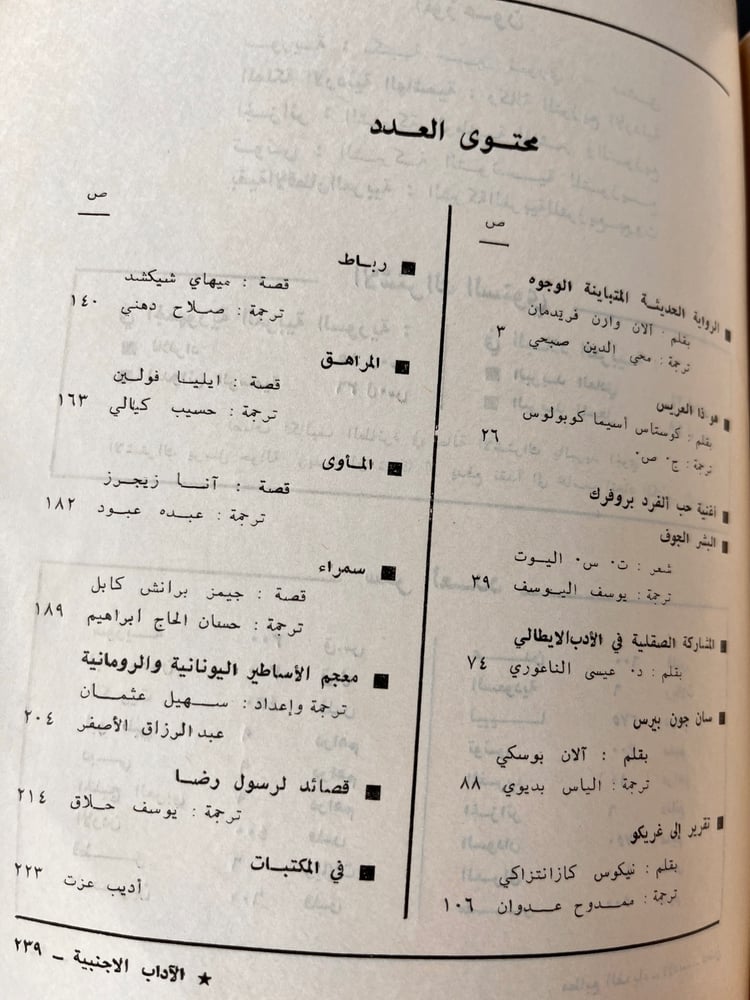 محتوى العدد
ص
■ الرواية الحديثة المتباينة الوجوه
بقلم : آلان وارن فريدمان
ترجمة : محي الدين صبحي ٣
■ هو ذا العريس
بقلم : كوستاس أسيما كوبولوس
ترجمة : ج٠ ص٠ ٢٦
■ أغنية حب ألفرد بروفرك
■ البشر الجوف
شعر : ت٠ س٠ اليوت
ترجمة : يوسف اليوسف ٣٩
■ المشاركة الصقلية في الأدب الايطالي
بقلم : د٠ عيسى الناعوري ٧٤
■ سان جون بيرس
بقلم : آلان بوسكي
ترجمة : الياس بديوي ٨٨
■ تقرير إلى غريكو
بقلم : نيكوس كازانتزاكي
ترجمة : ممدوح عدوان ١٠٦
ص
■ رباط
قصة : ميهاي شيكشد
ترجمة : صلاح دهني ١٤٠
■ المراهق
قصة : ايليا فولين
ترجمة : حسيب كيالي ١٦٣
■ المأوى
قصة : آنا زيجرز
ترجمة : عبده عبود ١٨٢
■ سمراء
قصة : جيمز برانش كابل
ترجمة : حسان الحاج ابراهيم ١٨٩
■ معجم الأساطير اليونانية والرومانية
ترجمة وإعداد : سهيل عثمان
عبد الرزاق الأصفر ٢٠٤
■ قصائد لرسول رضا
ترجمة : يوسف حلاق ٢١٤
■ في المكتبات
أديب عزت ٢٢٣
★ الآداب الاجنبية – ٢٣٩